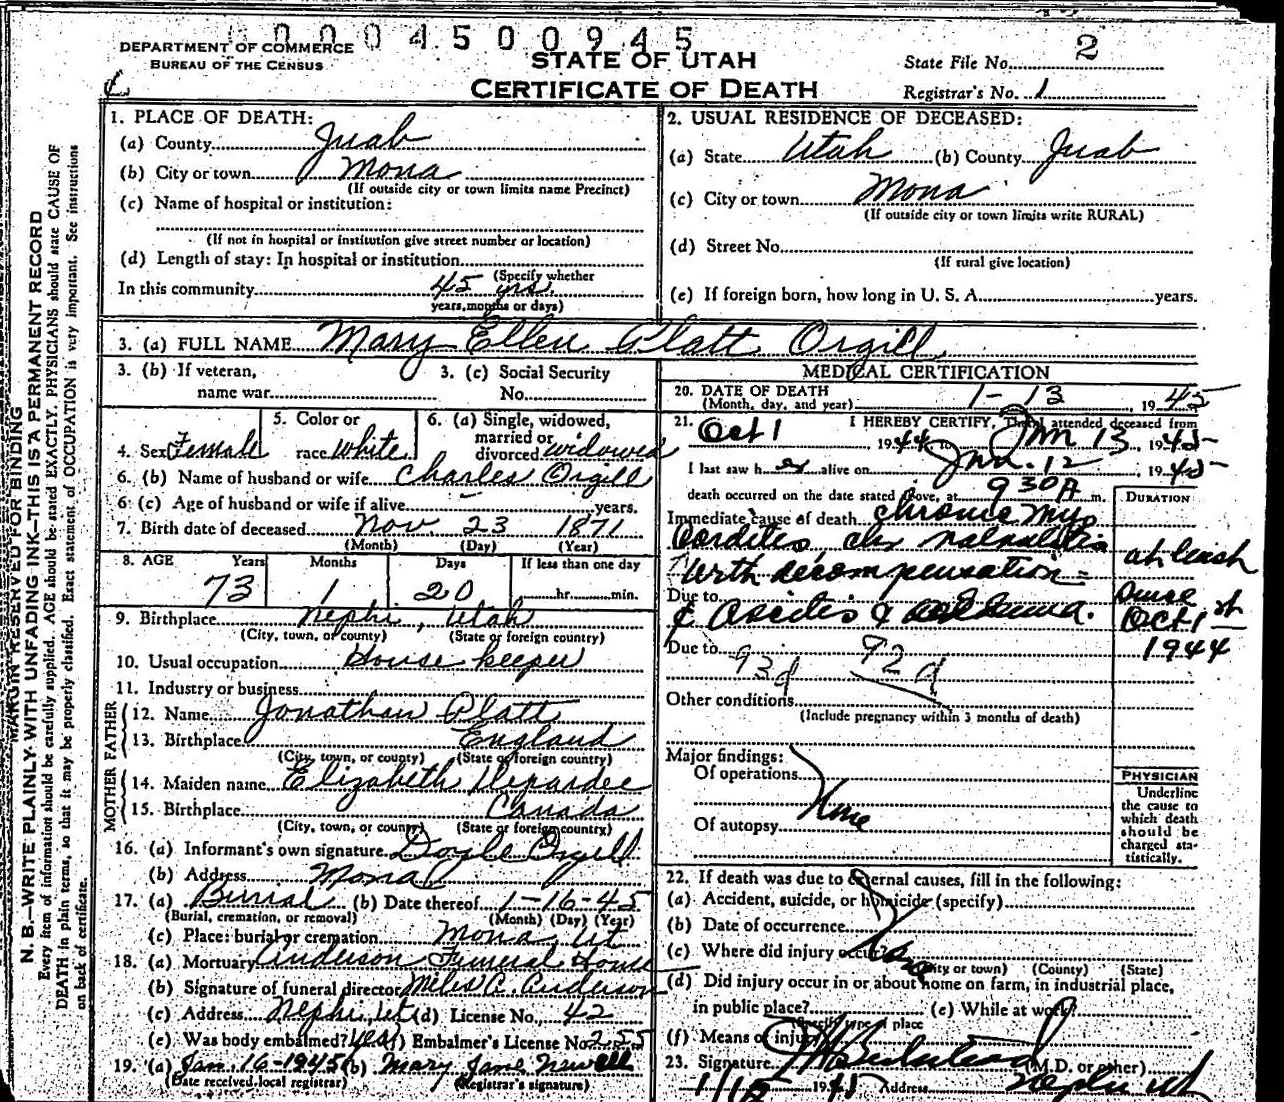 0004500945
DEPARTMENT OF COMMERCE
BUREAU OF THE CENSUS
STATE OF UTAH
CERTIFICATE OF DEATH
State File No. 2
Registrar's No. 1
N. B.—WRITE PLAINLY WITH UNFADING INK—THIS IS A PERMANENT RECORD
MARGIN RESERVED FOR BINDING
Every item of information should be carefully supplied. AGE should be stated EXACTLY. PHYSICIANS should state CAUSE OF
DEATH in plain terms, so that it may be properly classified. Exact statement of OCCUPATION is very important. See instructions
on back of certificate.
1. PLACE OF DEATH:
(a) County Juab
(b) City or town Mona
(If outside city or town limits name Precinct)
(c) Name of hospital or institution:
(If not in hospital or institution give street number or location)
(d) Length of stay: In hospital or institution
(Specify whether
In this community 45 yrs.
years, months or days)
2. USUAL RESIDENCE OF DECEASED:
(a) State Utah (b) County Juab
(c) City or town Mona
(If outside city or town limits write RURAL)
(d) Street No.
(If rural give location)
(e) If foreign born, how long in U. S. A. years.
3. (a) FULL NAME Mary Ellen Platt Orgill
3. (b) If veteran,
name war
3. (c) Social Security
No.
4. Sex Female
5. Color or
race White
6. (a) Single, widowed,
married or
divorced widowed
6. (b) Name of husband or wife Charles Orgill
6. (c) Age of husband or wife if alive - years.
7. Birth date of deceased Nov. 23 1871
(Month) (Day) (Year)
8. AGE Years Months Days If less than one day
73 1 20 hr. min.
9. Birthplace Nephi, Utah
(City, town, or county) (State or foreign country)
10. Usual occupation House keeper
11. Industry or business
FATHER
12. Name Jonathan Platt
13. Birthplace England
(City, town, or county) (State or foreign country)
MOTHER
14. Maiden name Elizabeth
15. Birthplace Canada
(City, town, or county) (State or foreign country)
16. (a) Informant's own signature Doyle Orgill
(b) Address Mona
17. (a) Burial (b) Date thereof 1-16-45
(Burial, cremation, or removal) (Month) (Day) (Year)
(c) Place: burial or cremation Mona, Ut
18. (a) Mortuary Anderson Funeral Home
(b) Signature of funeral director Miles A. Anderson
(c) Address Nephi, Ut (d) License No. 42
(e) Was body embalmed? Yes (f) Embalmer's License No. 255
19. (a) Jan. 16-1945 (b) Mary Jane Newell
(Date received local registrar) (Registrar's signature)
MEDICAL CERTIFICATION
20. DATE OF DEATH 1-13, 1945
(Month, day, and year)
21. I HEREBY CERTIFY, That I attended deceased from
Oct 1 1944 to Jan 13 1945
I last saw her alive on Jan. 12 1945
death occurred on the date stated above, at 930A m.
DURATION
Immediate cause of death chronic Myo
cardites, chr
with decompensation
Due to
& Ascites &
Due to 93d 92d
at least
since
Oct 1st
1944
Other conditions
(Include pregnancy within 3 months of death)
Major findings:
Of operations
None
Of autopsy
PHYSICIAN
Underline
the cause to
which death
should be
charged sta-
tistically.
22. If death was due to external causes, fill in the following:
(a) Accident, suicide, or homicide (specify)
(b) Date of occurrence
(c) Where did injury occur?
(City or town) (County) (State)
(d) Did injury occur in or about home on farm, in industrial place,
in public place? (e) While at work?
(Specify type of place
(f) Means of injury
23. Signature (M.D. or other)
1945 Address Nephi Ut